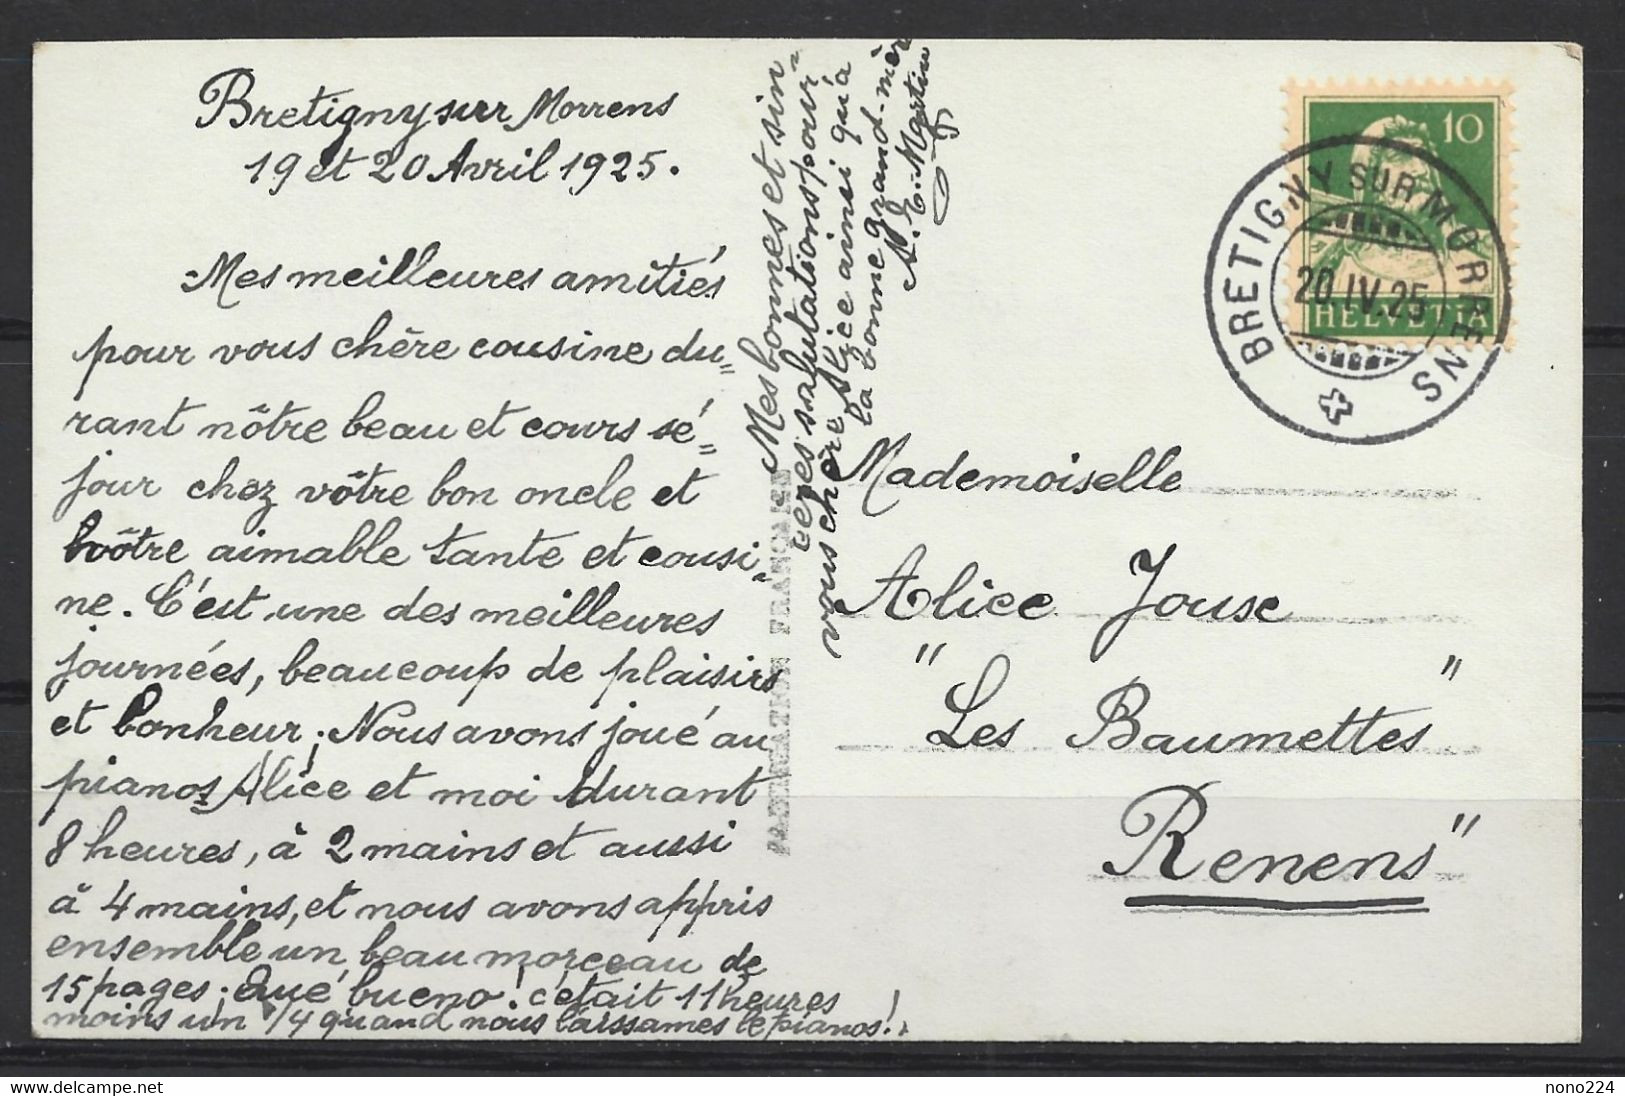 Bretigny sur Morrens
19 et 20 Avril 1925.
Mes meilleures amitiés
pour vous chère cousine du=
rant nôtre beau et cours sé=
jour chez vôtre bon oncle et
vôtre aimable tante et cousi=
ne. C'est une des meilleures
journées, beaucoup de plaisirs
et bonheur; Nous avons joué au
pianos Alice et moi durant
8 heures, à 2 mains et aussi
à 4 mains, et nous avons appris
ensemble un beau morceau de
15 pages; Qué bueno! c'était 11 heures
moins un 1/4 quand nous laissames le pianos!
Mes bonnes et sin=
cères salutations pour
vous chère Alice ainsi qu'à
la bonne grand-mère
A. E. Martin
FABRICATION FRANÇAISE
10
HELVETIA
BRETIGNY SUR MORRENS
20.IV.25
Mademoiselle
Alice Jouse
"Les Baumettes"
Renens"
www.delcampe.net
nono224